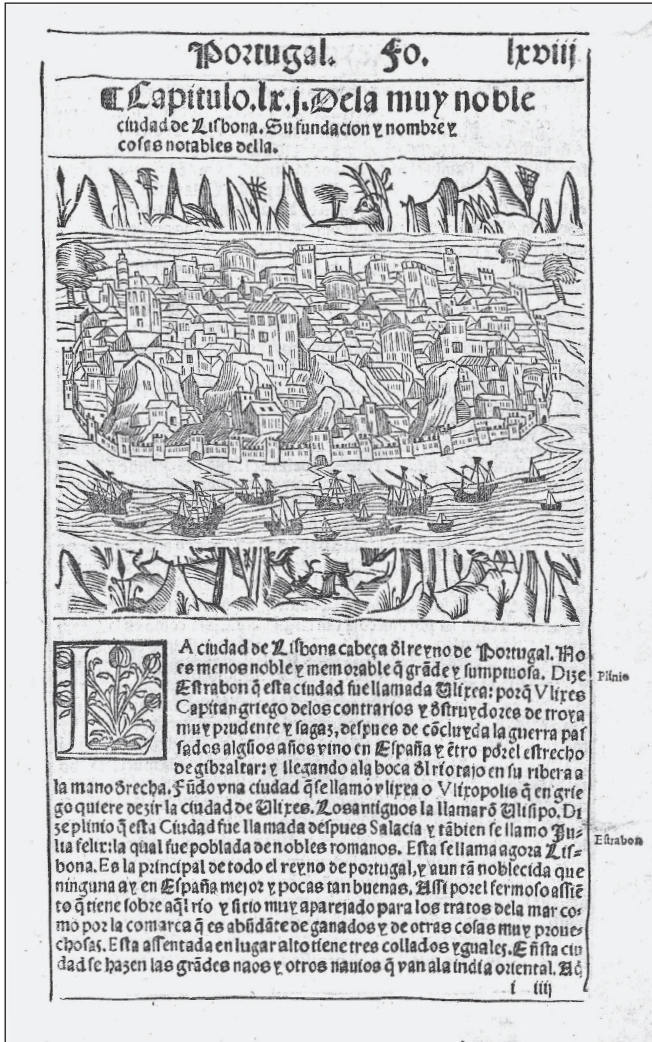 Portugal. Fo. lxviij
¶Capitulo.lx.j.Dela muy noble
ciudad de Lisbona. Su fundacion ⁊ nombre ⁊
cosas notables della.
LA ciudad de Lisbona cabeça ďl reyno de Portugal. No
es menos noble ⁊ memorable q̃ grãde ⁊ sumptuosa. Dize
Plinio
Estrabon q̃ esta ciudad fue llamada Ulixea: porq̃ Vlixes
Capitan griego delos contrarios ⁊ ďstruydores de troya
muy prudente ⁊ sagaz, despues de cõcluyda la guerra pas
sados algũos años vino en España ⁊ ẽtro por el estrecho
de gibraltar: ⁊ llegando ala boca ďl rio tajo en su ribera a
la mano ďrecha. Fũdo vna ciudad q̃ se llamo vlixea o Vlixopolis q̃ en grie
go quiere dezir la ciudad de Ulixes. Los antiguos la llamarõ Ulisipo. Di
ze plinio q̃ esta Ciudad fue llamada despues Salacia ⁊ tãbien se llamo Ju-
lia felix: la qual fue poblada de nobles romanos. Esta se llama agora Lis-
Estrabon
bona. Es la principal de todo el reyno de portugal, ⁊ aun tã noblecida que
ninguna ay en España mejor ⁊ pocas tan buenas. Assi por el fermoso assiẽ
to q̃ tiene sobre aq̃l rio ⁊ sitio muy aparejado para los tratos dela mar co-
mo por la comarca q̃ es abũdãte de ganados ⁊ de otras cosas muy proue-
chosas. Esta assentada en lugar alto tiene tres collados yguales. Eñsta ciu
dad se hazen las grãdes naos ⁊ otros nauios q̃ van ala india oriental. Aq̃
i iiij